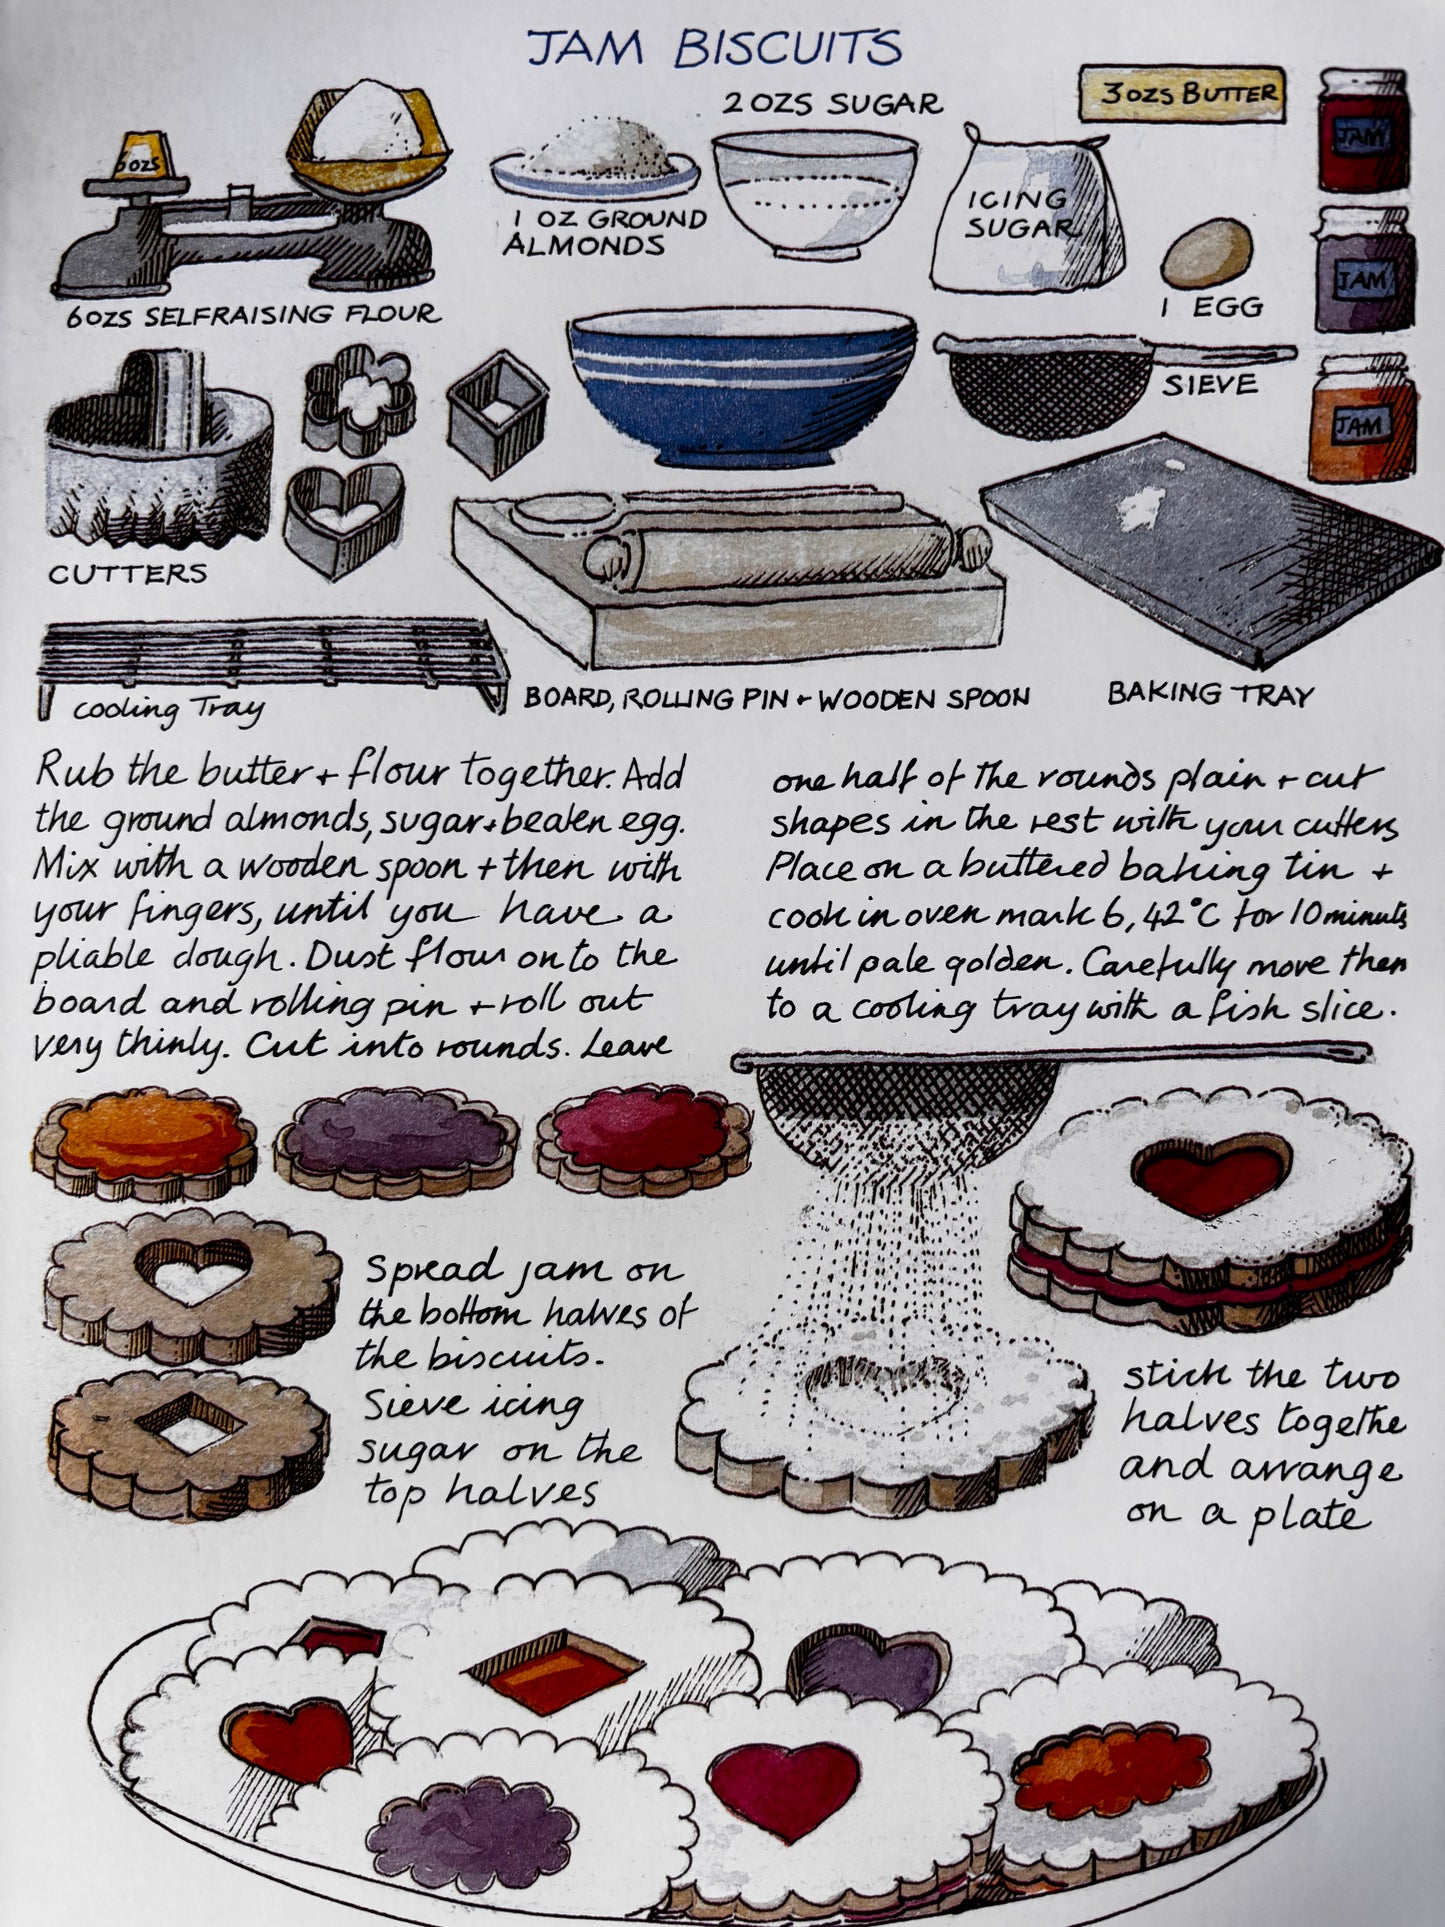 JAM BISCUITS
2 OZS SUGAR
3 OZS BUTTER
JAM
1 OZ GROUND
ALMONDS
ICING
SUGAR
JAM
1 EGG
6OZS SELFRAISING FLOUR
SIEVE
JAM
CUTTERS
cooling Tray
BOARD, ROLLING PIN + WOODEN SPOON
BAKING TRAY
Rub the butter + flour together. Add
the ground almonds, sugar + beaten egg.
Mix with a wooden spoon + then with
your fingers, until you have a
pliable dough. Dust flour onto the
board and rolling pin + roll out
very thinly. Cut into rounds. Leave
one half of the rounds plain + cut
shapes in the rest with your cutters
Place on a buttered baking tin +
cook in oven mark 6, 42°C for 10 minuts
until pale golden. Carefully move them
to a cooling tray with a fish slice.
Spread jam on
the bottom halves of
the biscuits.
Sieve icing
sugar on the
top halves
stick the two
halves togethe
and arrange
on a plate